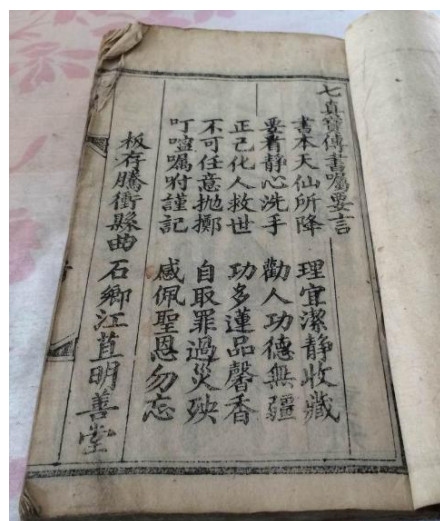 七真寶傳書屬要言
書本天仙所降 理宜潔靜收藏
要看靜心洗手 勸人功德無疆
正己化人救世 功多蓮品馨香
不可任意抛擲 自取罪過災殃
叮嚀囑咐謹記 感佩聖恩勿忘
板存騰衝縣曲石鄉江苴明善堂